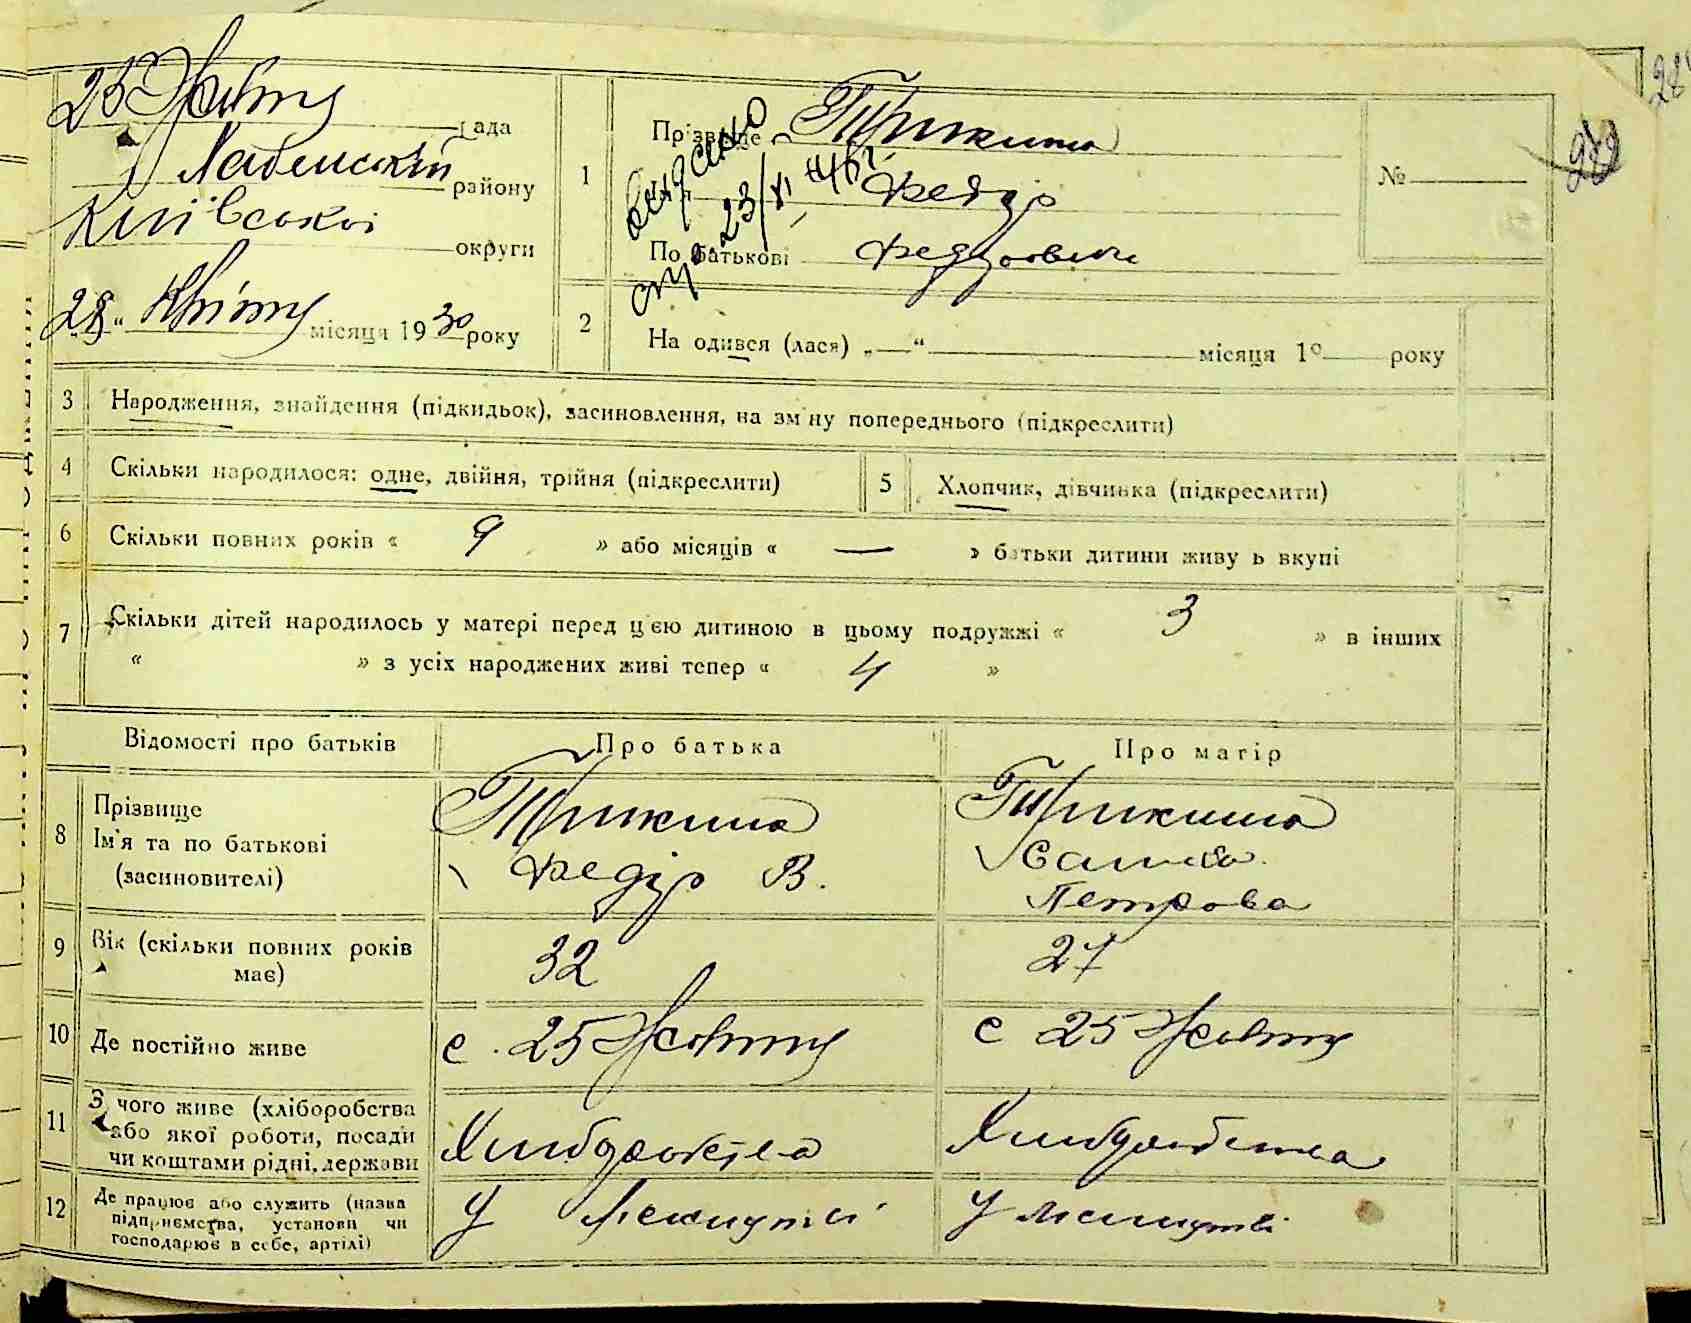 25 Жовтня рада
району
Київської округи
"28" Квітня місяця 1930 року
1
Прізвище Трикиша
Федір
По батькові Федорович
видано
23/VI 46 г.
№
2
На одився (лася) „—“ місяця 1 року
3 Народження, знайдення (підкидьок), засиновлення, на зміну попереднього (підкреслити)
4 Скільки народилося: одне, двійня, трійня (підкреслити)
5 Хлопчик, дівчинка (підкреслити)
6 Скільки повних років « 9 » або місяців « — » батьки дитини живу ь вкупі
7 Скільки дітей народилось у матері перед цією дитиною в цьому подружжі « 3 » в інших
« » з усіх народжених живі тепер « 4 »
Відомості про батьків
Про батька
Про матір
8
Прізвище
Ім'я та по батькові
(засиновителі)
Трикиша
Федір В.
Трикиша
Петрова
9
Вік (скільки повних років
має)
32
27
10 Де постійно живе
с. 25 Жовтня
с 25 Жовтня
11
З чого живе (хліборобства
або якої роботи, посади
чи коштами рідні, держави
12
Де працює або служить (назва
підприємства, установи чи
господарює в себе, артілі)
У
У